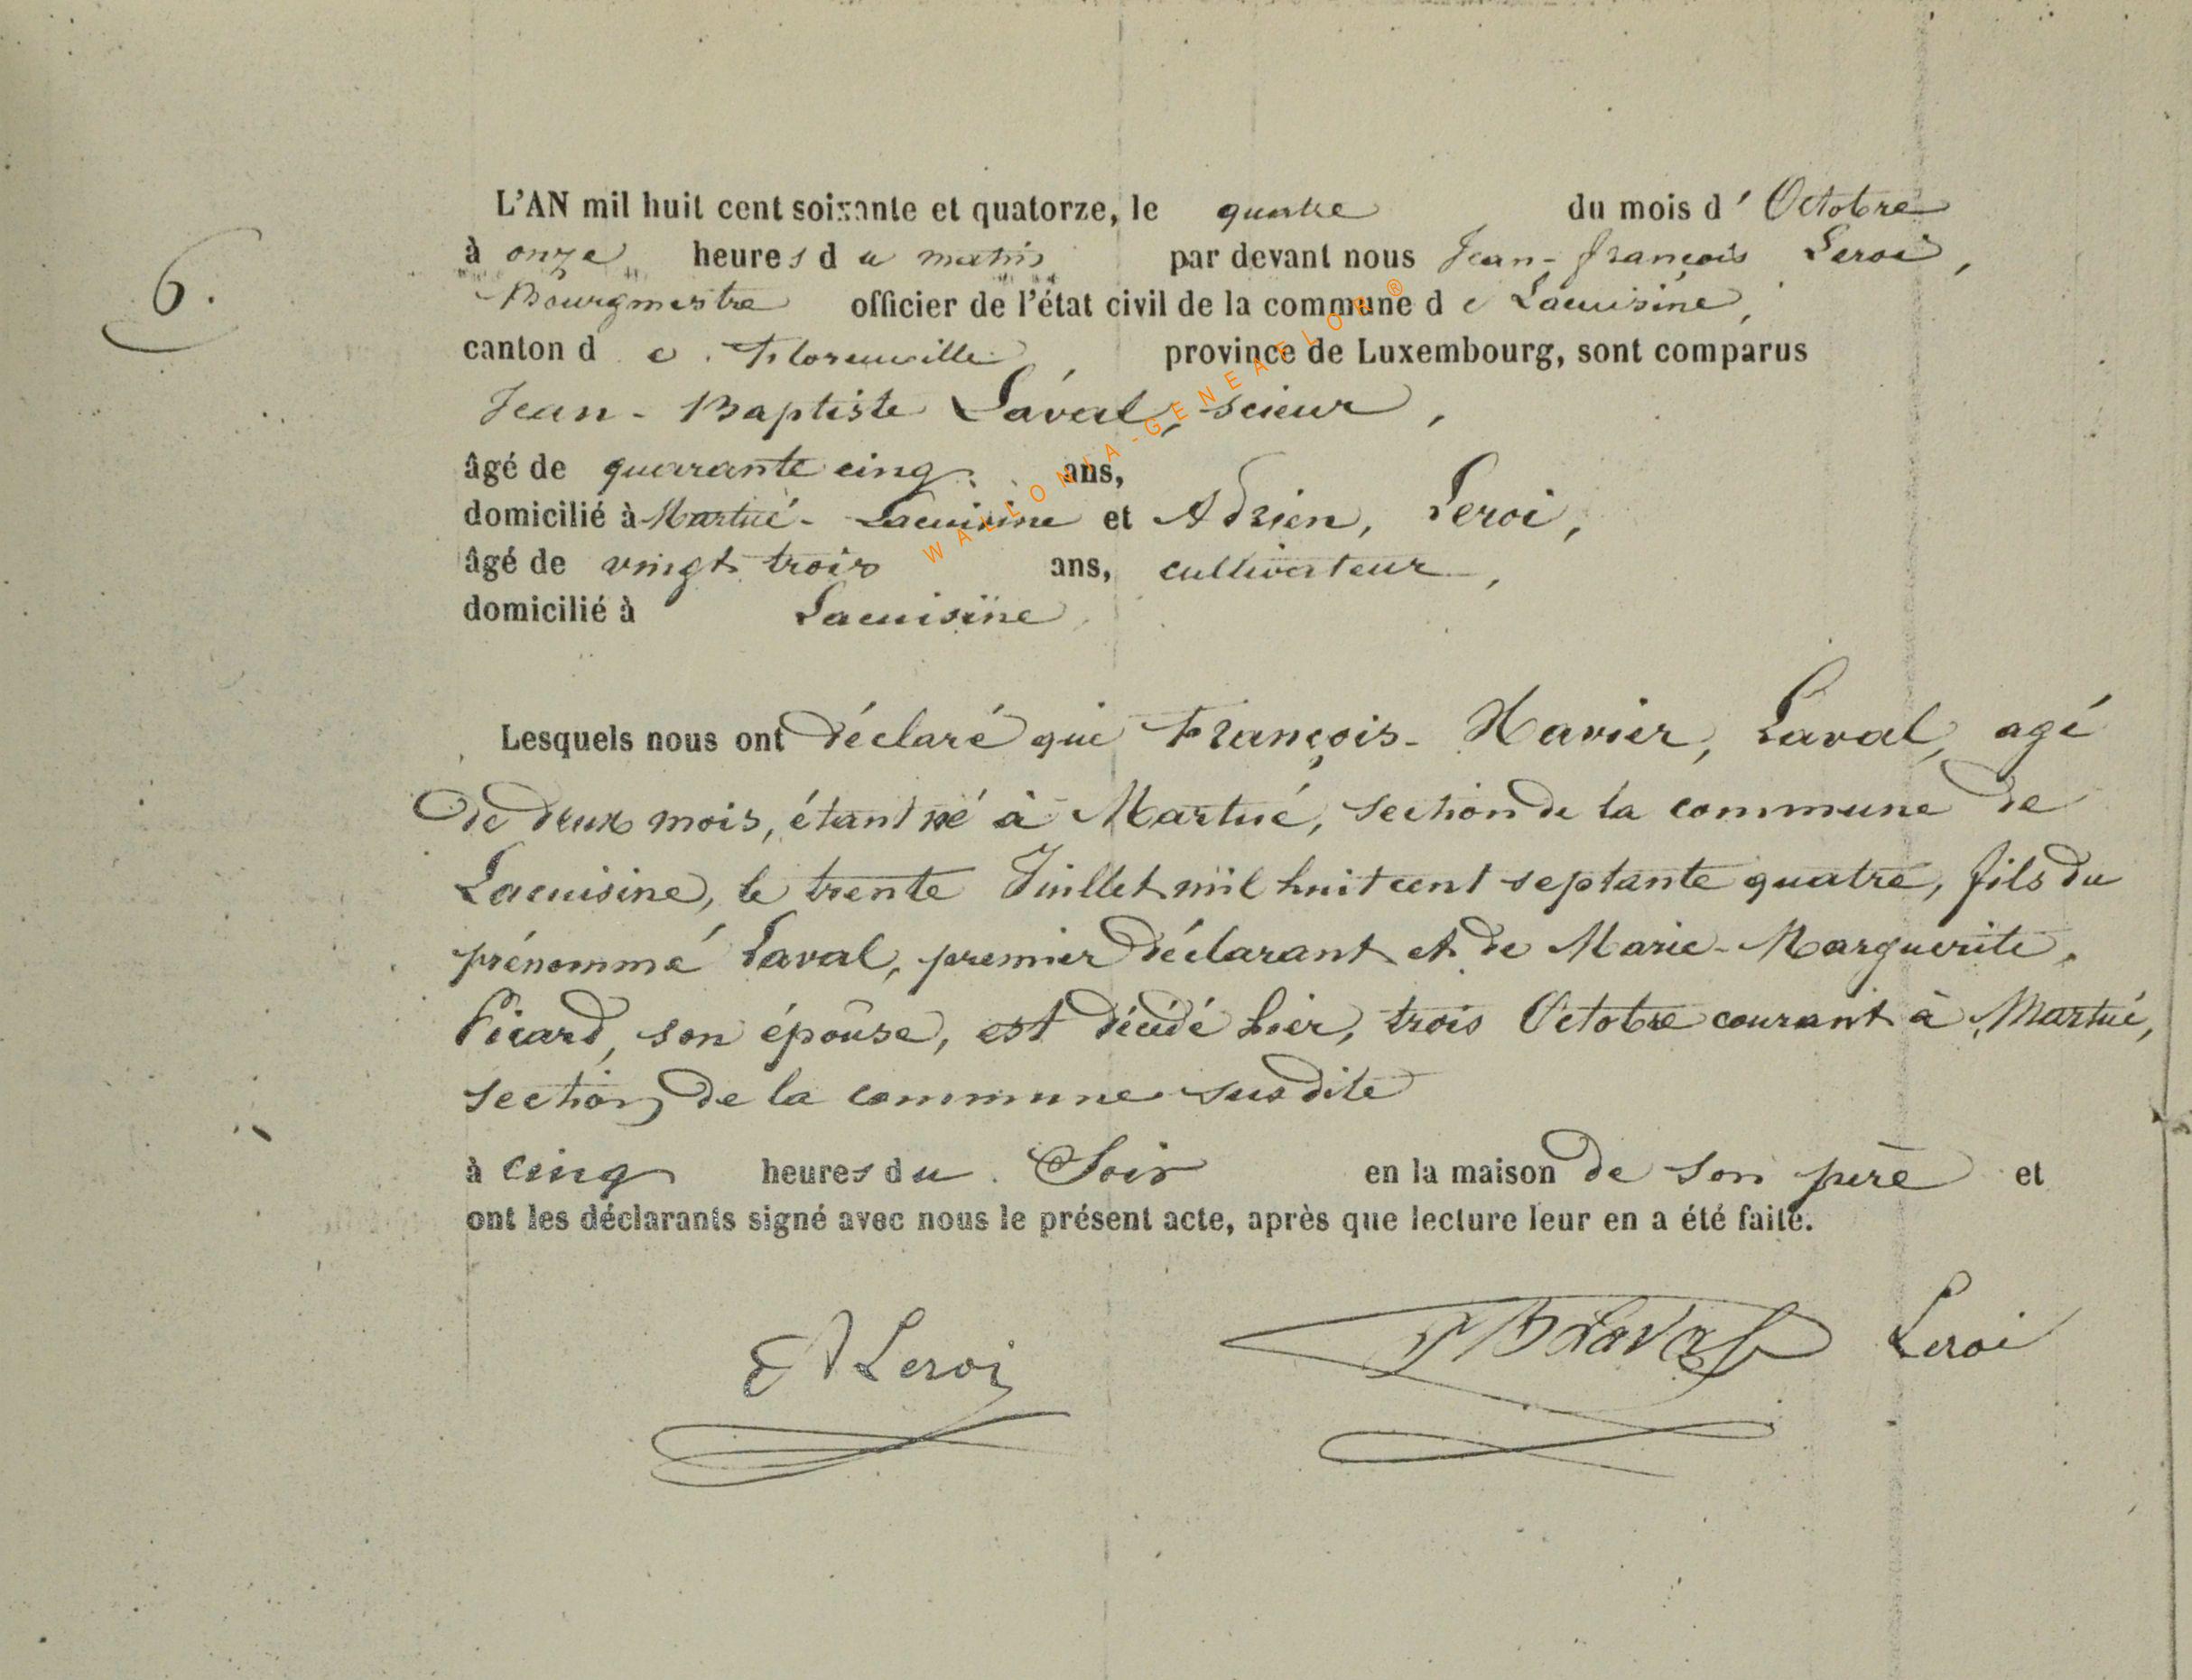 L'AN mil huit cent soixante et quatorze, le quatre du mois d'Octobre
à onze heures du matin par devant nous Jean-françois Leroi,
6.
Bourgmestre officier de l'état civil de la commune de Lacuisine,
canton de Florenville province de Luxembourg, sont comparus
Jean-Baptiste Laval, scieur,
âgé de quarante cinq ans,
domicilié à Martué-Lacuisine et Adrien, Leroi,
âgé de vingt trois ans, cultivateur,
domicilié à Lacuisine
WALLONIA-GENEAFLOR®
Lesquels nous ont déclaré que François-Xavier, Laval, agé
de deux mois, étant né à Martué, section de la commune de
Lacuisine, le trente Juillet mil huit cent septante quatre, fils du
prénommé Laval, premier déclarant et de Marie-Marguerite,
Picard, son épouse, est décédé hier, trois Octobre courant à Martué,
section de la commune susdite
à cinq heures du Soir en la maison de son père et
ont les déclarants signé avec nous le présent acte, après que lecture leur en a été faite.
A Leroi JB Laval Leroi